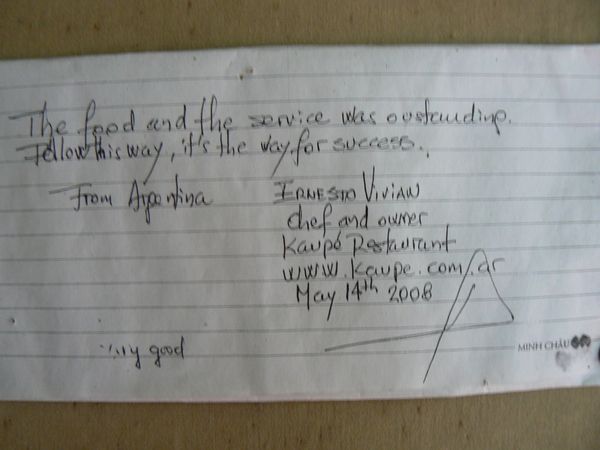 The food and the service was oustanding.
Follow this way, it's the way for success.
From Argentina
ERNESTO VIVIAN
chef and owner
Kaupé Restaurant
www.kaupe.com.ar
May 14th 2008
good
MINH CHÂU